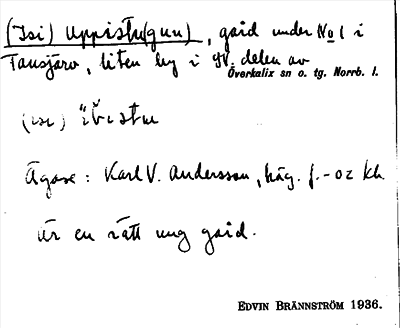 (Isi) Uppistu(gun), gård under No 1 i
Tansjärv, liten by i NV. delen av
Överkalix sn o. tg. Norrb. l.
Ägare: Karl V. Andersson, häg. f. -02 kh.
Är en rätt ung gård.
EDVIN BRÄNNSTRÖM 1936.